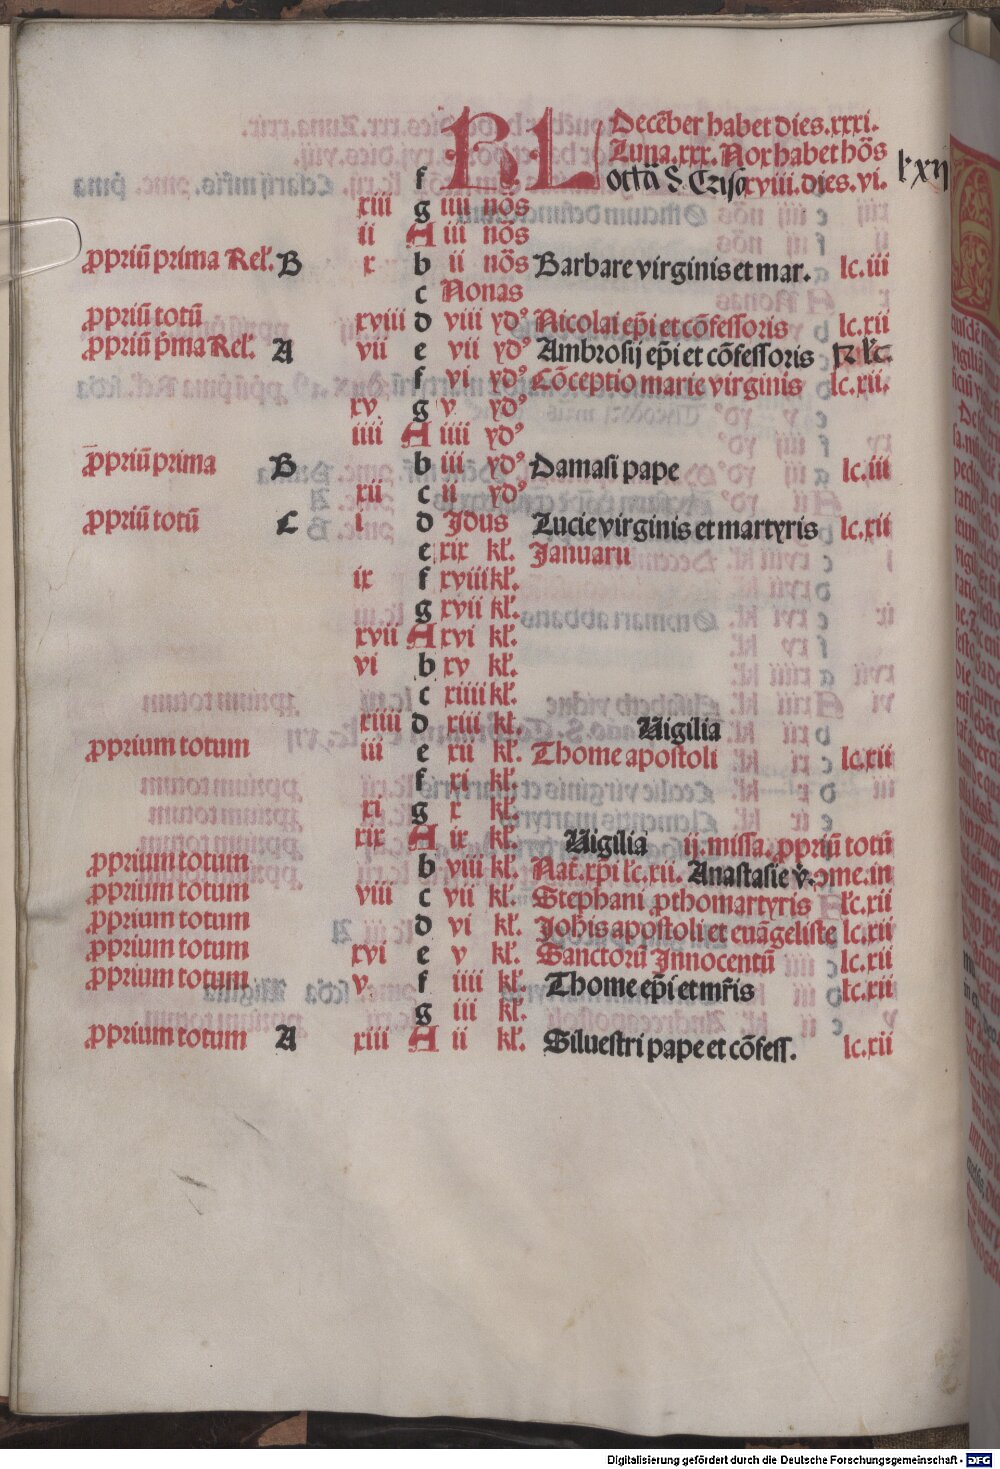 KL Decēber habet dies.xxxi.
Luna.xxx. Nox habet hōs
f octā S. xviii.dies.vi. l'xij
xiii g iiii nōs
ii A iii nōs
ꝓpriū prima Rel'. B x b ii nōs Barbare virginis et mar. lc.iii
c Nonas
ꝓpriū totū xviii d viii yd⁹ Nicolai ep̄i et cōfessoris lc.xii
ꝓpriū p̄ma Rel'. A vii e vii yd⁹ Ambrosij ep̄i et cōfessoris
f vi yd⁹ Cōceptio marie virginis lc.xii.
xv g v yd⁹
iiii A iiii yd⁹
ꝓpriū prima B b iii yd⁹ Damasi pape lc.iii
xii c ii yd⁹
ꝓpriū totū C i d Idus Lucie virginis et martyris lc.xii
e xix kl'. Januarii
ix f xviii kl'.
g xvii kl'.
xvii A xvi kl'.
vi b xv kl'.
c xiiii kl'.
xiiii d xiii kl'. Vigilia
ꝓprium totum iii e xii kl'. Thome apostoli lc.xii
f xi kl'.
xi g x kl'.
xix A ix kl'. Vigilia ij. missa. ꝓpriū totū
ꝓprium totum b viii kl'. Nat. xp̄i lc.xii. Anastasie v̄. ome.in
ꝓprium totum viii c vii kl'. Stephani ꝓthomartyris lc.xii
ꝓprium totum d vi kl'. Joh̄is apostoli et euāgeliste lc.xii
ꝓprium totum xvi e v kl'. Sanctorū Innocentū lc.xii
ꝓprium totum v f iiii kl'. Thome ep̄i et mr̄is lc.xii
g iii kl'.
ꝓprium totum A xiii A ii kl'. Siluestri pape et cōfess. lc.xii
Digitalisierung gefördert durch die Deutsche Forschungsgemeinschaft - DFG